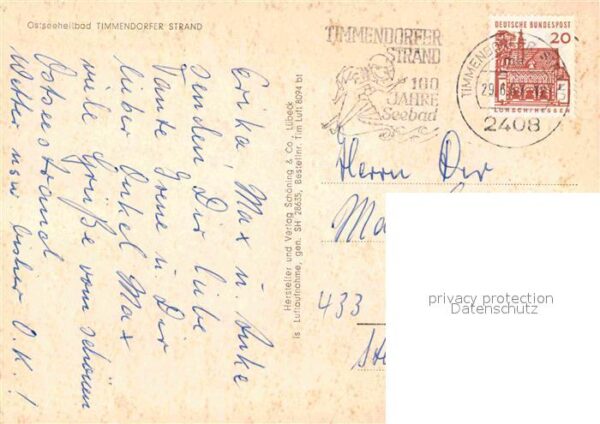 Ostseeheilbad TIMMENDORFER STRAND
TIMMENDORFER
STRAND
100
JAHRE
Seebad
DEUTSCHE BUNDESPOST
20
LORSCH/HESSEN
TIMMENDORFER
2408
Erika, Max u. Anke
senden Dir liebe
Tante Irene u. Dir
lieber Onkel Max
viele Grüße vom schönen
Ostseestrand.
Wetter usw bisher O.K.!
Hersteller und Verlag Schöning & Co., Lübeck
ls Luftaufnahme, gen. SH 28635, Bestellnr. Tim Luft 8094 bt
Herrn Dir
Ma
433
privacy protection
Datenschutz